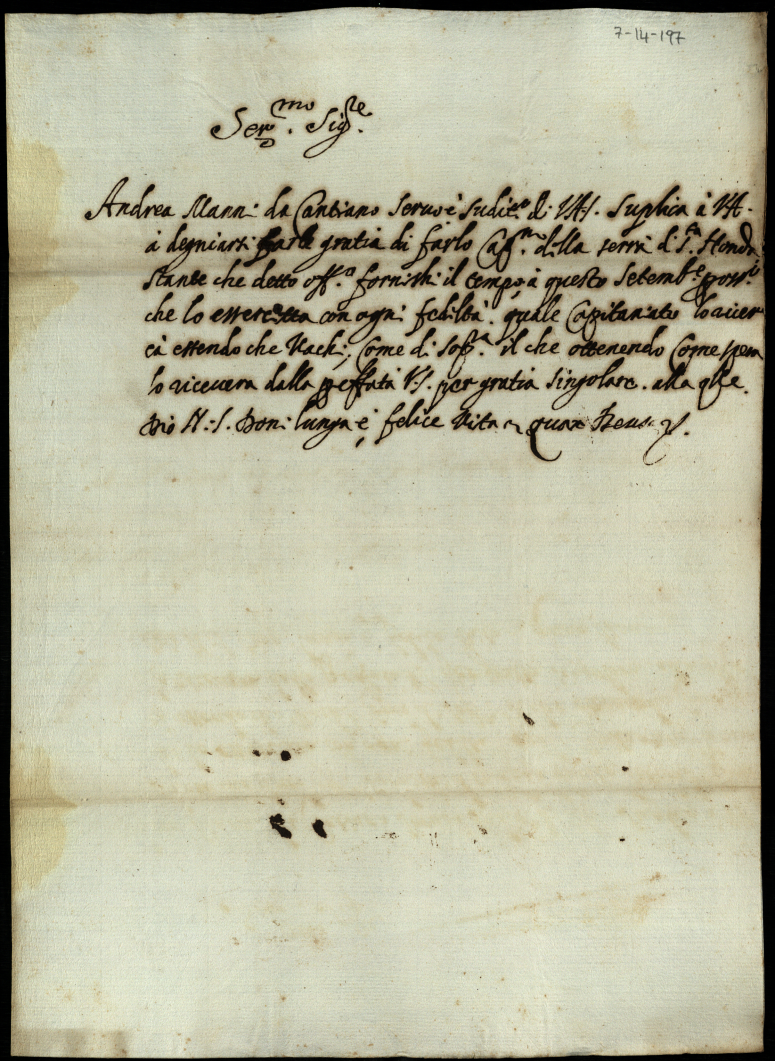 7-14-197
Ser.mo Sig.re
Andrea Manni da Cantiano servo è sudit.o di V.A.S. suplica à V.A.
à degniarsi farli gratia di farlo Cap.no della serra di S.ta
stante che detto off.o fornischi il tempo à questo Setemb.e
che lo essercitta con ogni fediltà. quale Capitaniato lo
cà essendo che Vachi, Come di sop.a il che ottenendo Come spera
lo ricevera dalla preffata V.S. per gratia singolare. alla q.le
Dio N.S. Doni lunga è felice Vita quam Deus